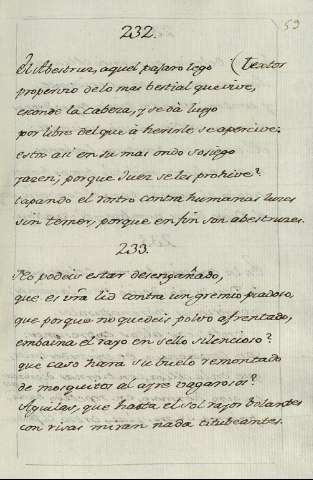 59
232.
El Abestruz, aquel pajaro lego (Textor
propervio de lo mas bestial que vive,
esconde la Cabeza, y se dà luego
por libre del que à herirle se apercive:
estos asi en su mas ondo sosiego
yazen; porque Juez se les prohive?
tapando el rostro contra humanas luzes
sin temer, porque en fin son abestruzes.
233.
No podeis estar desengañado,
que es vr̃a lid contra un gremio piadoso,
que porque no quedeis polvo afrentado,
embaina el rayo en sello silencioso?
què caso harà su buelo remontado
de mosquitos al ayre vagarosos?
Aguilas, que hasta el sol razos bolantes
con risas miran nada titubeantes.